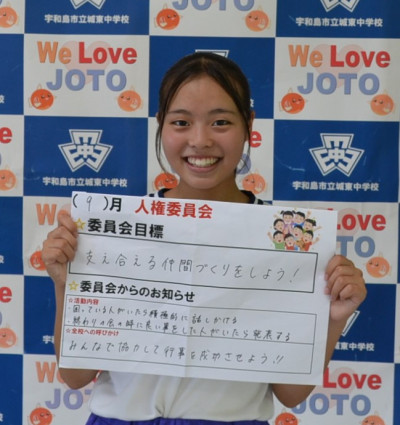 We Love
JOTO
宇和島市立城東中学校
We Love
JOTO
宇和島市立城東中学校
宇和島市立城東中学校
We Love
JOTO
We Love
JOTO
(9)月 人権委員会
☆委員会目標
支え合える仲間づくりをしよう!
☆委員会からのお知らせ
☆活動内容
・困っている人がいたら積極的に話しかける
・終わりの会の時に良い事をした人がいたら発表する
☆全校への呼びかけ
みんなで協力して行事を成功させよう!!